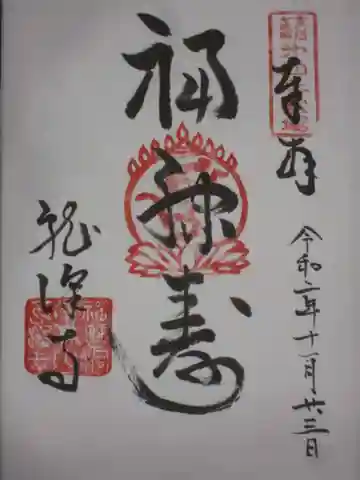 奉拝
令和二年十一月廿三日
福禄寿
龍深寺